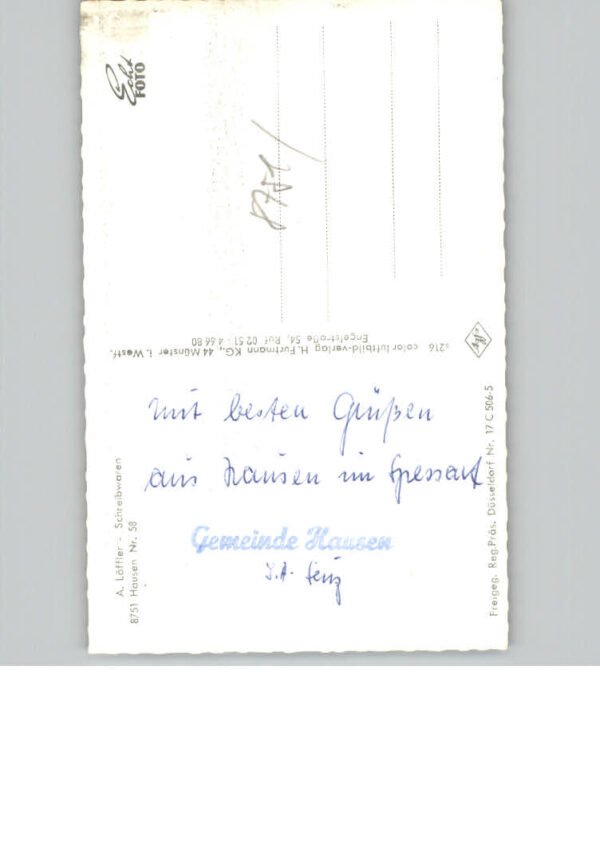 Echt
FOTO
8751/
s216 color luftbild-verlag H. Furtmann KG., 44 Münster i. Westf.
Engelstraße 54, Ruf 02 51 - 4 66 80
mit besten Grüßen
aus Hausen im Spessart
Gemeinde Hausen
I.A.
A. Löffler - Schreibwaren
8751 Hausen Nr. 58
Freigeg. Reg.Präs. Düsseldorf Nr. 17 C 506-5